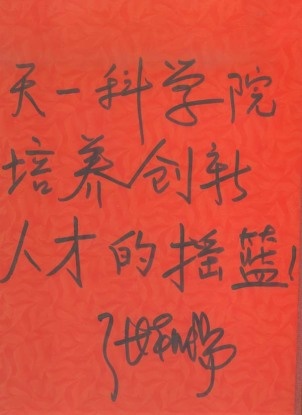 天一科学院
培养创新
人才的摇篮!